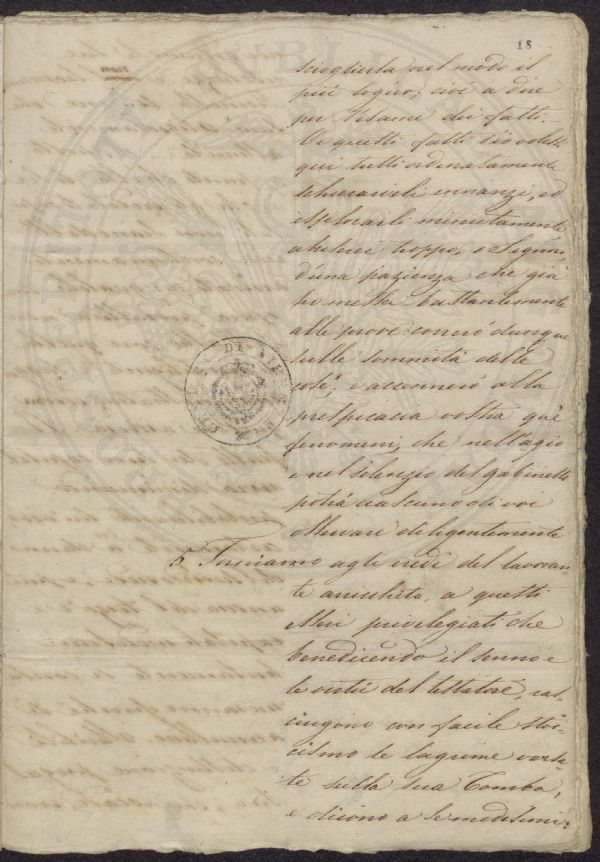 18
sciogliesta nel modo il
più sicuro, cioè a dire
per l'esame dei fatti.
Or questi fatti s'io volessi
qui tutti ordinatamente
schierarveli innanzi, ed
esplorarli minutamente
abuserei troppo, o Signori,
d'una pazienza che già
ho messa bastantemente
alle prove: correrò dunque
sulle sommità delle
cose, e accennerò alla
perspicacia vostra que'
fenomeni, che nell'agio
e nel silenzio del gabinetto
potrà ciascuno di voi
osservare diligentemente
5. Torniamo agli eredi del lavoran-
te arricchito, a questi
esseri privilegiati che
benedicendo il senno e
le virtù del testatore, ras-
ciugono con facile stoi-
cismo le lagrime versa-
te sulla sua Tomba,
e dicono a se medesimi: